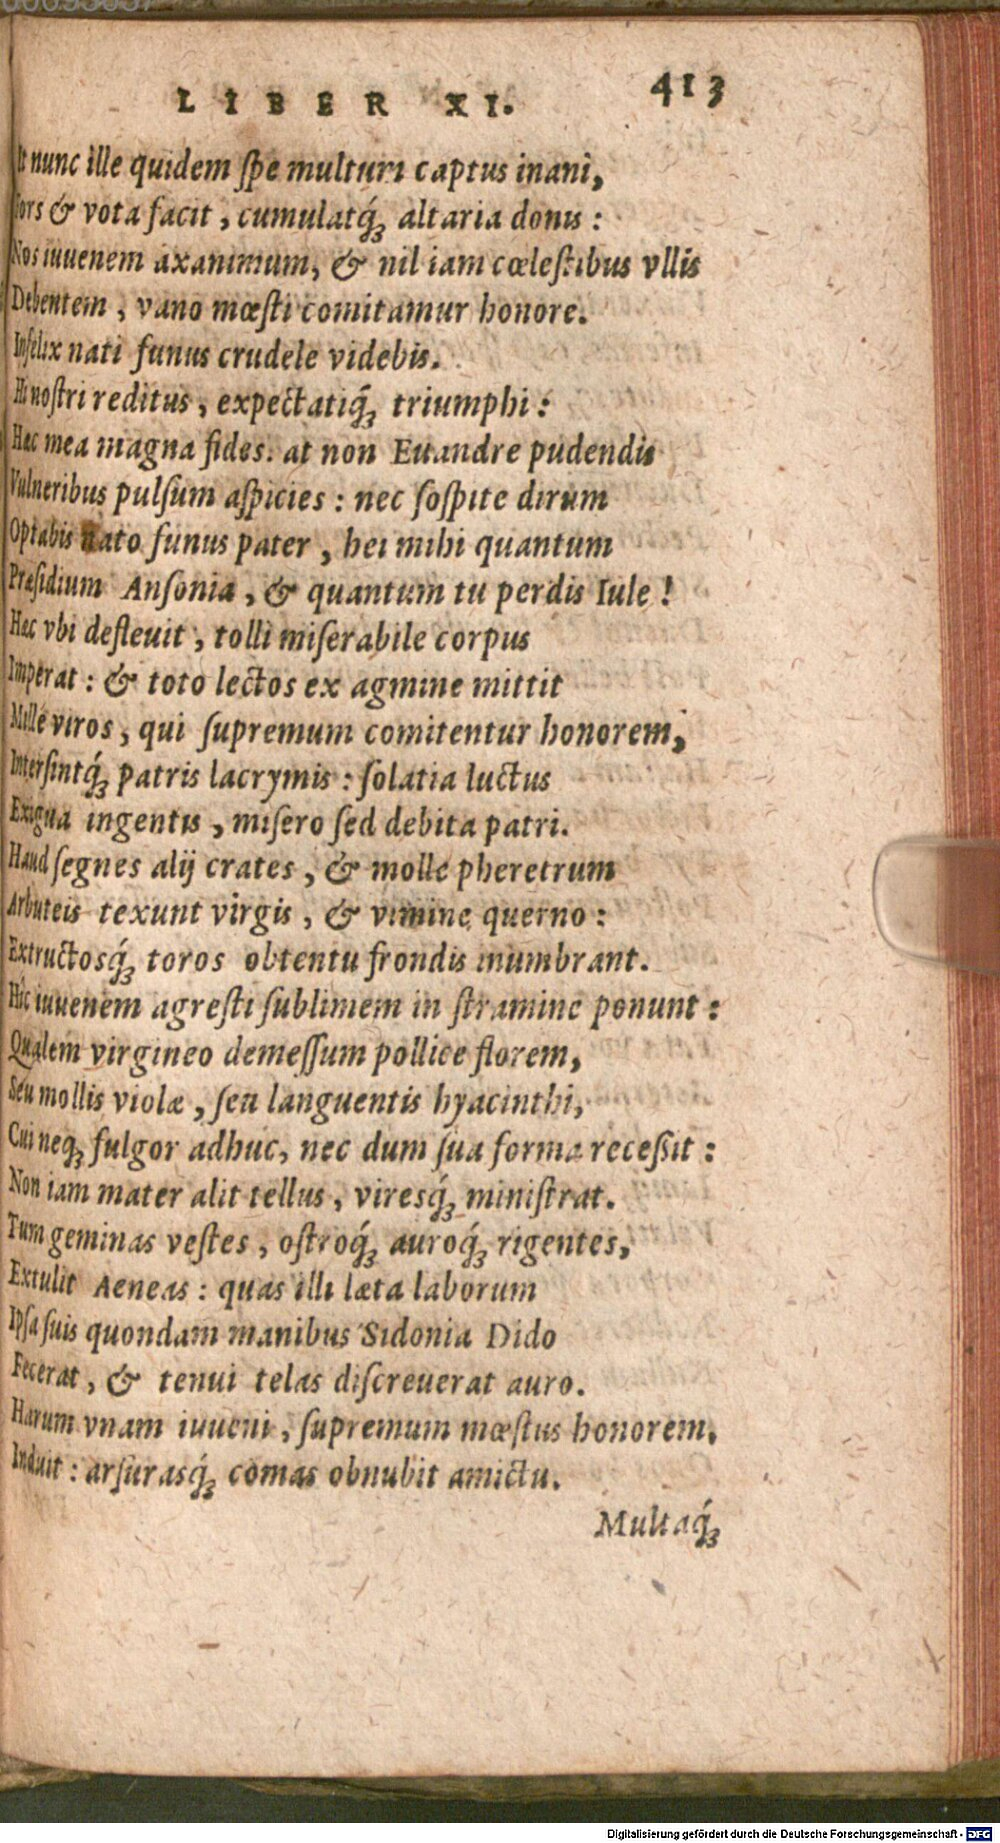 LIBER XI. 413
Et nunc ille quidem ſpe multum captus inani,
Fors & vota facit, cumulatq́; altaria donis:
Nos iuuenem axanimum, & nil iam cœleſtibus vllis
Debentem, vano mœſti comitamur honore.
Infelix nati funus crudele videbis.
Hi noſtri reditus, expectatiq́; triumphi:
Hæc mea magna fides. at non Euandre pudendis
Vulneribus pulſum aſpicies: nec ſoſpite dirum
Optabis nato funus pater, hei mihi quantum
Præſidium Anſonia, & quantum tu perdis Iule!
Hæc vbi defleuit, tolli miſerabile corpus
Imperat: & toto lectos ex agmine mittit
Mille viros, qui ſupremum comitentur honorem,
Interſintq́; patris lacrymis: ſolatia luctus
Exigua ingentis, miſero ſed debita patri.
Haud ſegnes alij crates, & molle pheretrum
Arbuteis texunt virgis, & vimine querno:
Extructosq́; toros obtentu frondis inumbrant.
Hic iuuenem agreſti ſublimem in ſtramine ponunt:
Qualem virgineo demeſſum pollice florem,
Seu mollis violæ, ſeu languentis hyacinthi,
Cui neq; fulgor adhuc, nec dum ſua forma receſsit:
Non iam mater alit tellus, viresq́; miniſtrat.
Tum geminas veſtes, oſtroq́; auroq́; rigentes,
Extulit Aeneas: quas illi læta laborum
Ipſa ſuis quondam manibus Sidonia Dido
Fecerat, & tenui telas diſcreuerat auro.
Harum vnam iuueni, ſupremum mœſtus honorem,
Induit: arſurasq́; comas obnubit amictu.
Multaq́;
Digitalisierung gefördert durch die Deutsche Forschungsgemeinschaft - DFG